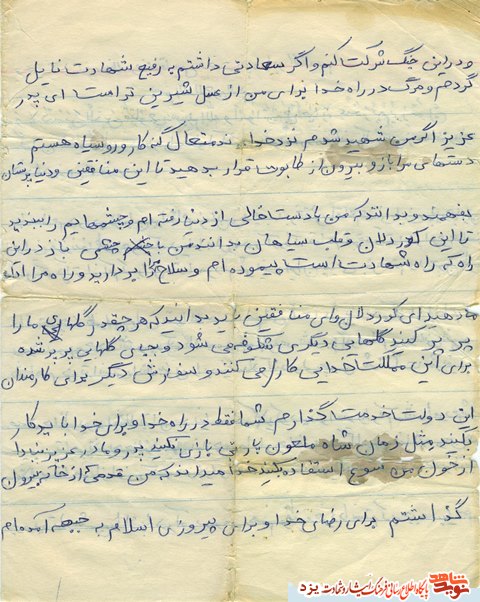 و در این جنگ شرکت کنم و اگر سعادتی داشتم به رفیع شهادت نایل
گردم و مرگ در راه خدا برای من از عسل شیرین تر است ای پدر
عزیز اگر من شهید شدم نزد خداوند متعال گنه کار و رو سیاه هستم
دستهای مرا باز و بیرون از طابوت قرار بدهید تا این منافقین و دنیا پرستان
بفهمند و بدانند که من با دست خالی از دنیا رفته ام و چشمهایم را ببندید
تا این کوردلان و قلب سیاهان بدانند من با چشمی باز در این
راه که راه شهادت است پیموده ام و سلاح مرا بردارید و راه مرا ادامه
بدهید ای کوردلان و ای منافقین باید بدانید که هر چقدر گلهای ما را
پر پر کنید گلهای دیگری شکوفه می شود و بجای گلهایی پر پر شده
برای این مملکت خدایی کار می کنند و سفارش دیگر برای کارمندان
این دولت خدمتگذارم شما فقط در راه خدا و برای خدا باید کار
بکنید مثل زمان شاه ملعون پارتی بازی نکنید پدر و مادر عزیز مبادا
از خون من سوء استفاده بکنید خدا میداند که من قدمی از خانه بیرون
گذاشتم برای رضای خدا و برای پیروزی اسلام به جبهه آمده ام
نوید شاهد
پایگاه اطلاع رسانی فرهنگ ایثار و شهادت یزد